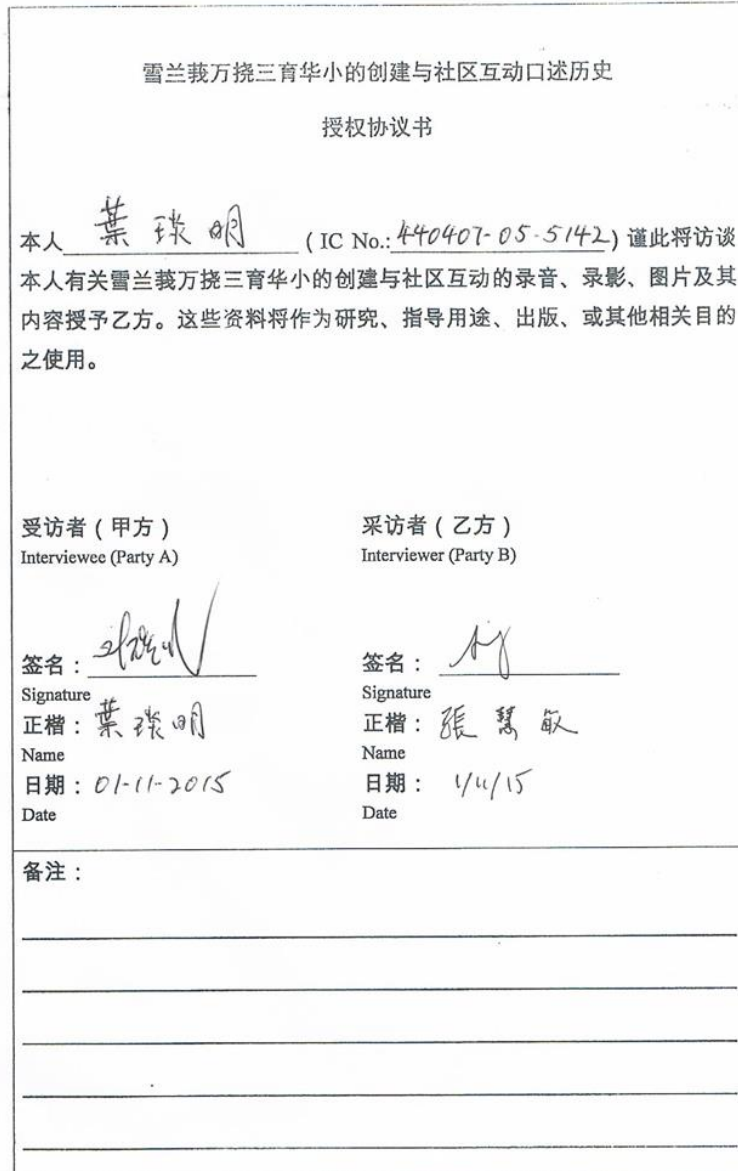 雪兰莪万挠三育华小的创建与社区互动口述历史
授权协议书
本人 葉琰明 ( IC No.: 440407-05-5142 ) 谨此将访谈
本人有关雪兰莪万挠三育华小的创建与社区互动的录音、录影、图片及其
内容授予乙方。这些资料将作为研究、指导用途、出版、或其他相关目的
之使用。
受访者（甲方）
Interviewee (Party A)
签名：
Signature
正楷：葉琰明
Name
日期：01-11-2015
Date
采访者（乙方）
Interviewer (Party B)
签名：
Signature
正楷：張慧敏
Name
日期：1/11/15
Date
备注：